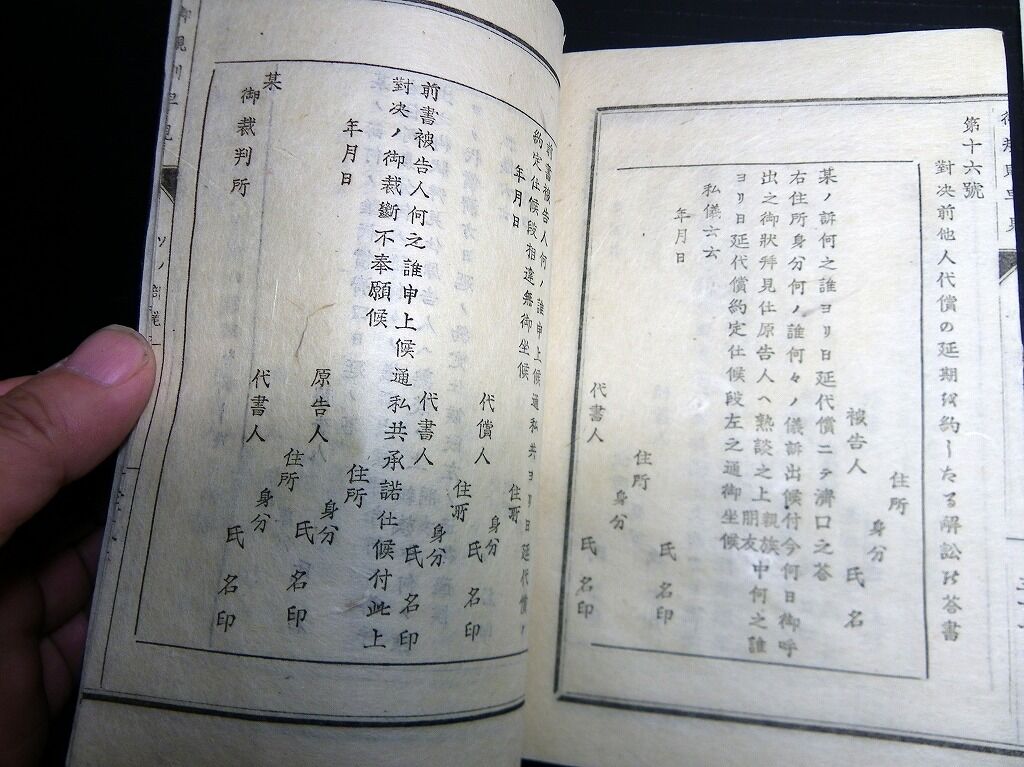 第十六號
對決前他人代償の延期を約したる解訟の答書
某ノ訴何之誰ヨリ日延代償ニテ濟口之答
被告人
住所
身分
氏名
右住所身分何ノ誰何々ノ儀訴出候付今何日御呼
出之御狀拜見仕原告人ヘ熟談之上親族朋友中何之誰
ヨリ日延代償約定仕候段左之通御坐候
私儀云云
年月日
住所
身分
氏名印
代書人
住所
身分
氏名印
前書被告人何ノ誰申上候通私共ヨリ日延代償ノ
約定仕候段相違無御坐候
年月日
代償人
住所
身分
氏名印
代書人
住所
身分
氏名印
前書被告人何之誰申上候通私共承諾仕候付此上
對決ノ御裁斷不奉願候
年月日
原告人
住所
身分
氏名印
代書人
住所
身分
氏名印
某
御裁判所